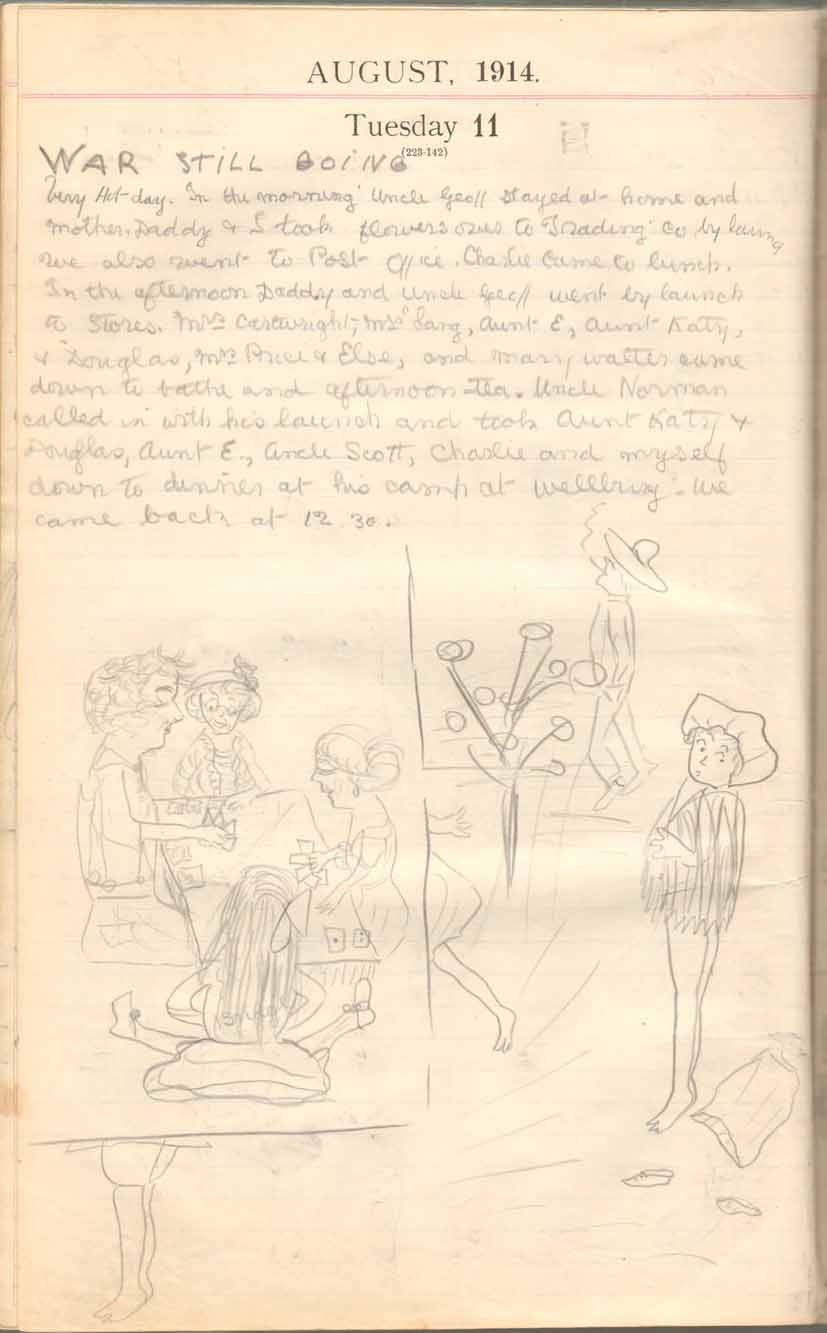 AUGUST, 1914.
Tuesday 11
(223-142)
WAR STILL GOING
Very Hot day. In the morning Uncle Geoff stayed at home and
mother, Daddy & I took flowers over to Trading Co by launch
we also went to Post Office. Charlie came to lunch.
In the afternoon Daddy and Uncle Geoff went by launch
to Stores. Mrs Cartwright, Mrs Sang, Aunt E, Aunt Katy,
& Douglas, Mrs Price & Else, and mary walter came
down to bathe and afternoon tea. Uncle Norman
called in with his launch and took Aunt Katy &
Douglas, Aunt E., Uncle Scott, Charlie and myself
down to dinner at his camp at wellbury. We
came back at 12.30.